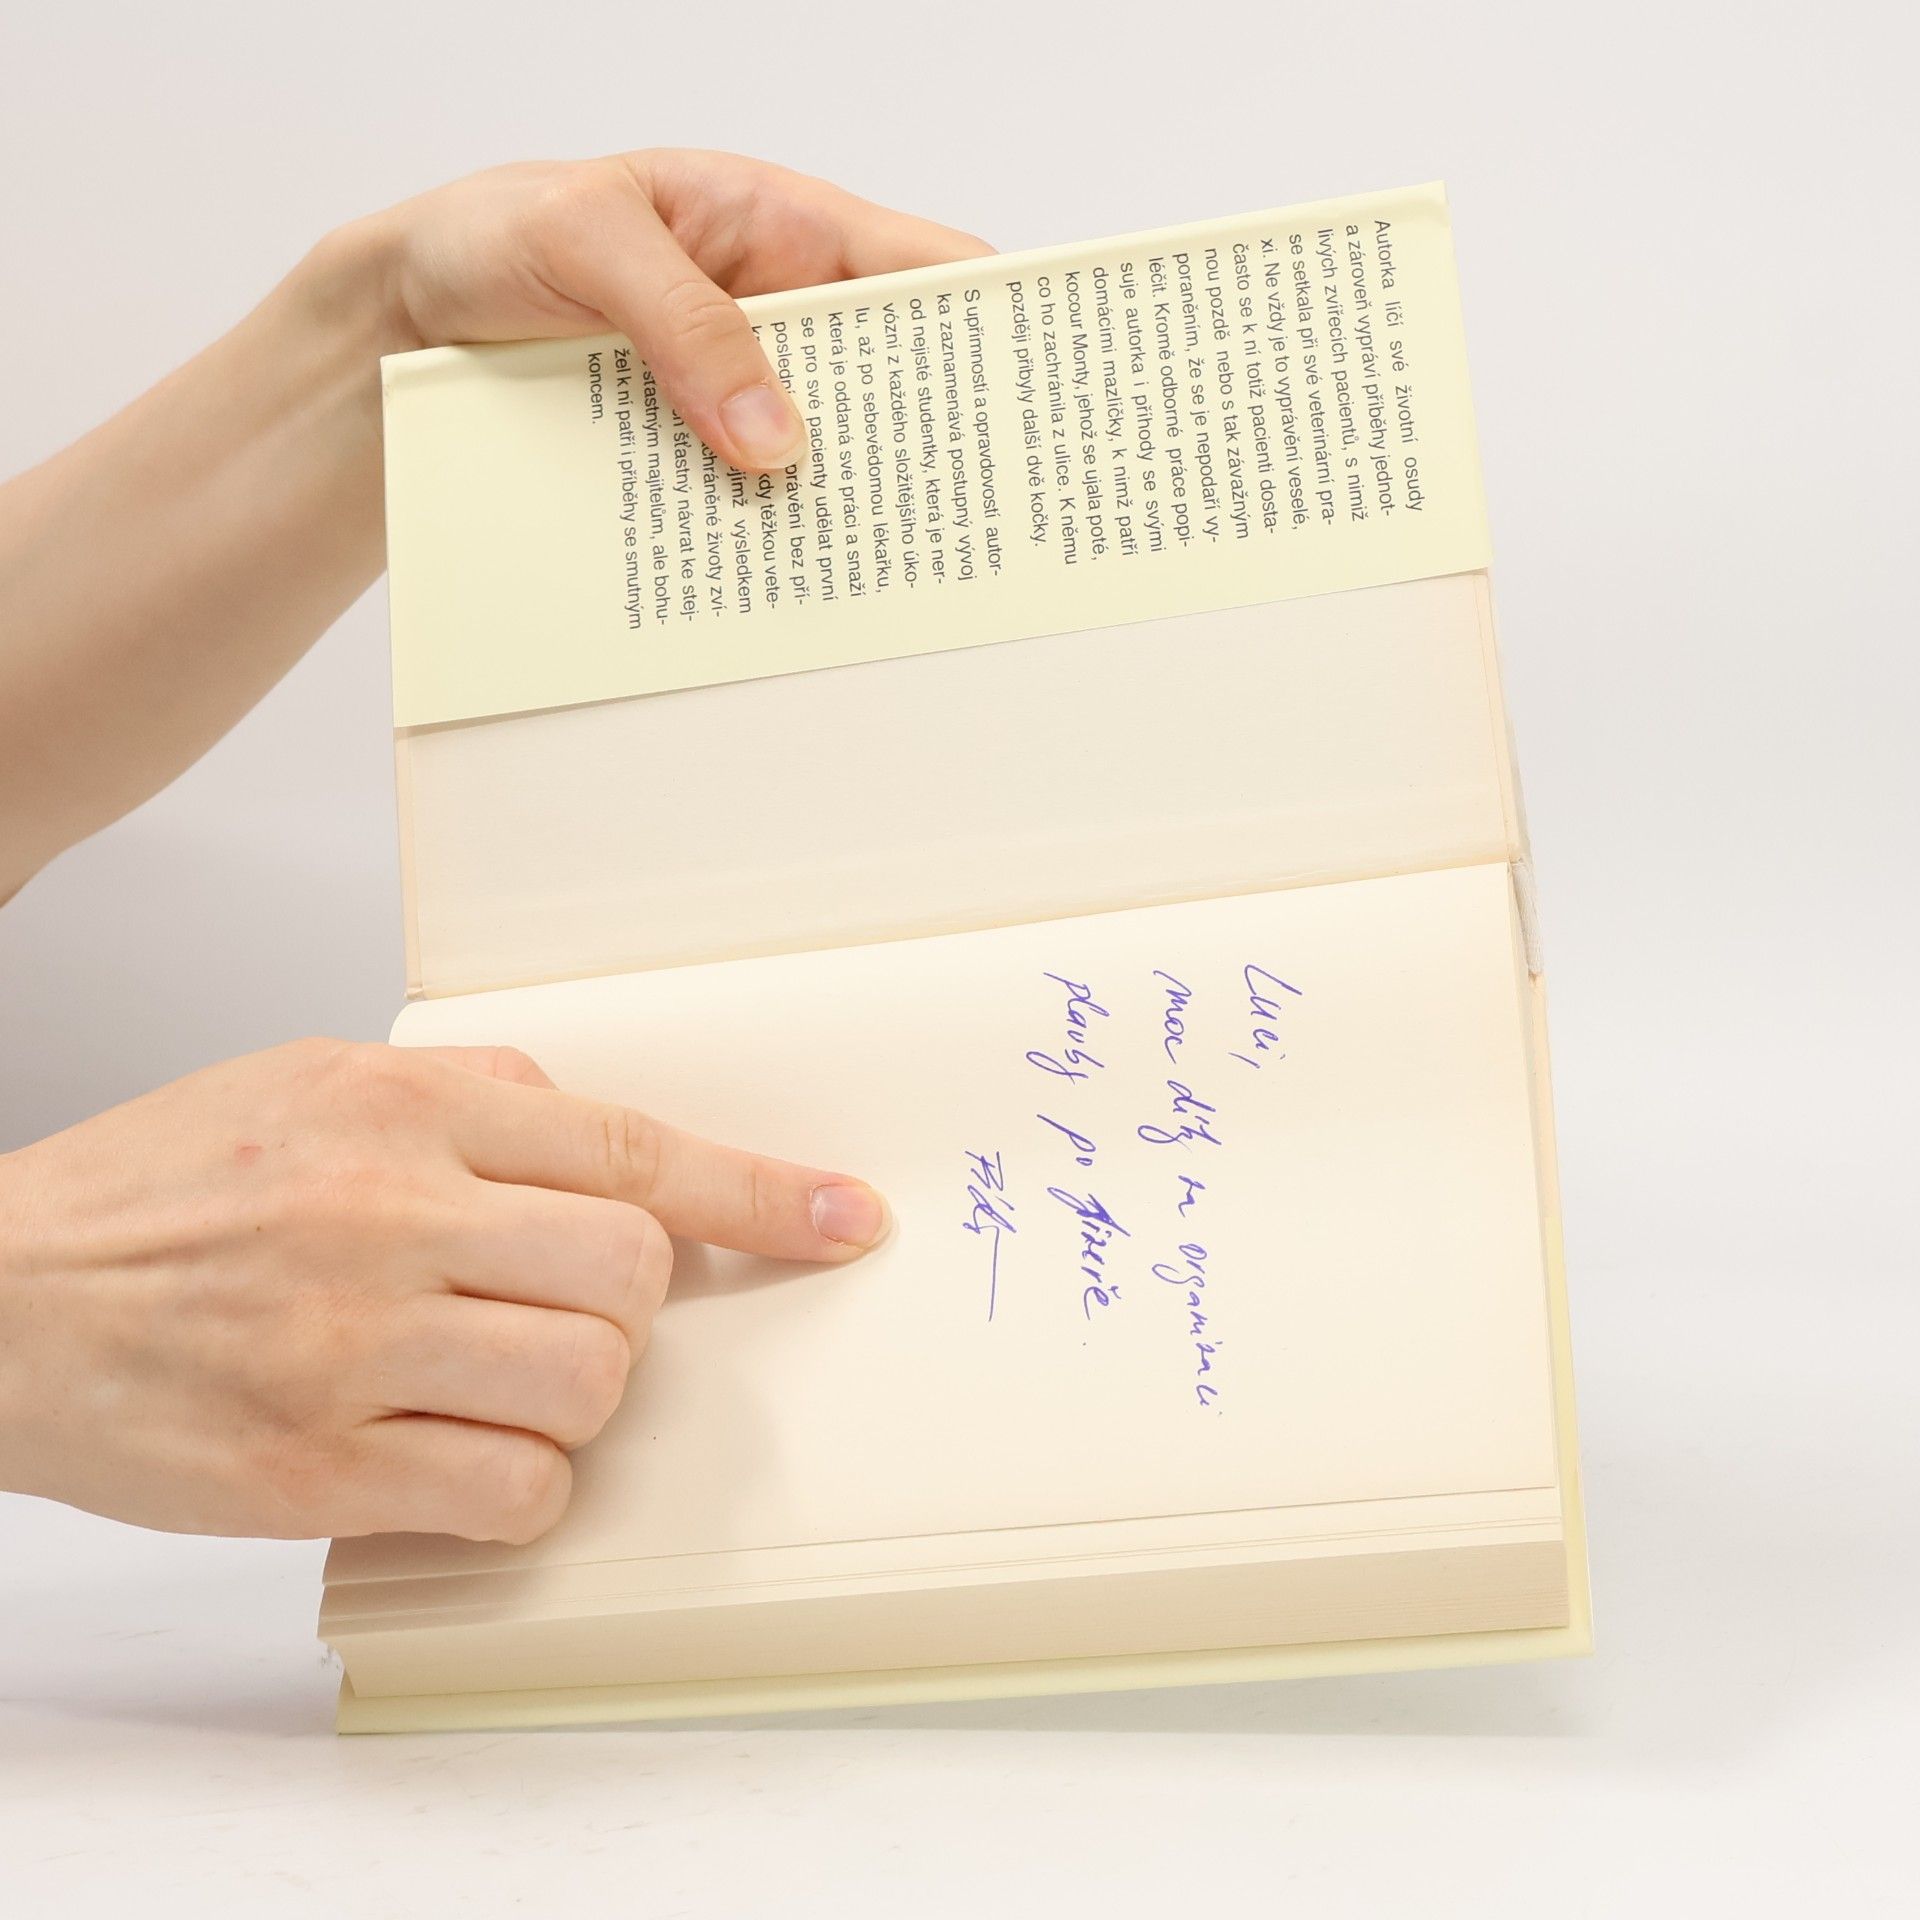 Autorka líčí své životní osudy
a zároveň vypráví příběhy jednot-
livých zvířecích pacientů, s nimiž
se setkala při své veterinární pra-
xi. Ne vždy je to vyprávění veselé,
často se k ní totiž pacienti dosta-
nou pozdě nebo s tak závažným
poraněním, že se je nepodaří vy-
léčit. Kromě odborné práce popi-
suje autorka i příhody se svými
domácími mazlíčky, k nimž patří
kocour Monty, jehož se ujala poté,
co ho zachránila z ulice. K němu
později přibyly další dvě kočky.
S upřímností a opravdovostí autor-
ka zaznamenává postupný vývoj
od nejisté studentky, která je ner-
vózní z každého složitějšího úko-
lu, až po sebevědomou lékařku,
která je oddaná své práci a snaží
se pro své pacienty udělat první
poslední bez pří-
těžkou vete-
výsledkem
životy zví-
šťastný návrat ke stej-
šťastným majitelům, ale bohu-
žel k ní patří i příběhy se smutným
koncem.
Luci,
moc díky za organizaci
plavby po Jizeře.